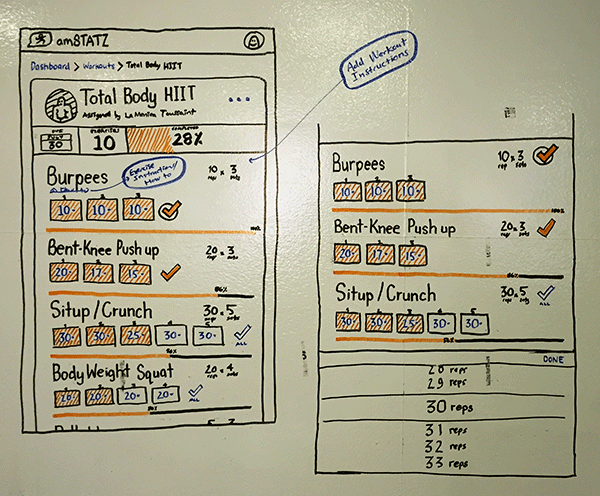 am8TATZ
Dashboard > Workouts > Total Body HIIT
Total Body HIIT
Assigned by La Monica Toussaint
DUE
30
exercises
10
completed
28%
Add Workout
Instructions
Burpees
Exercise
Instruction/
How to
10 x 3
rep sets
10- 10- 10-
100%
Bent-Knee Push up
20 x 3
rep sets
20- 17- 15-
86%
Situp/Crunch
30 x 5
reps sets
30- 30- 25- 30- 30-
ALL
56%
Body Weight Squat
20 x 4
20- 20- 20- 20-
ALL
50%
Burpees
10 x 3
rep sets
10- 10- 10-
100%
Bent-Knee Push up
20 x 3
rep sets
20- 17- 15-
86%
Situp/Crunch
30 x 5
reps sets
30- 30- 25- 30- 30-
ALL
56%
DONE
28 reps
29 reps
30 reps
31 reps
32 reps
33 reps